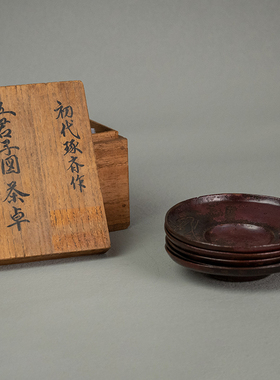 初代琢斎作
五君子図 茶卓